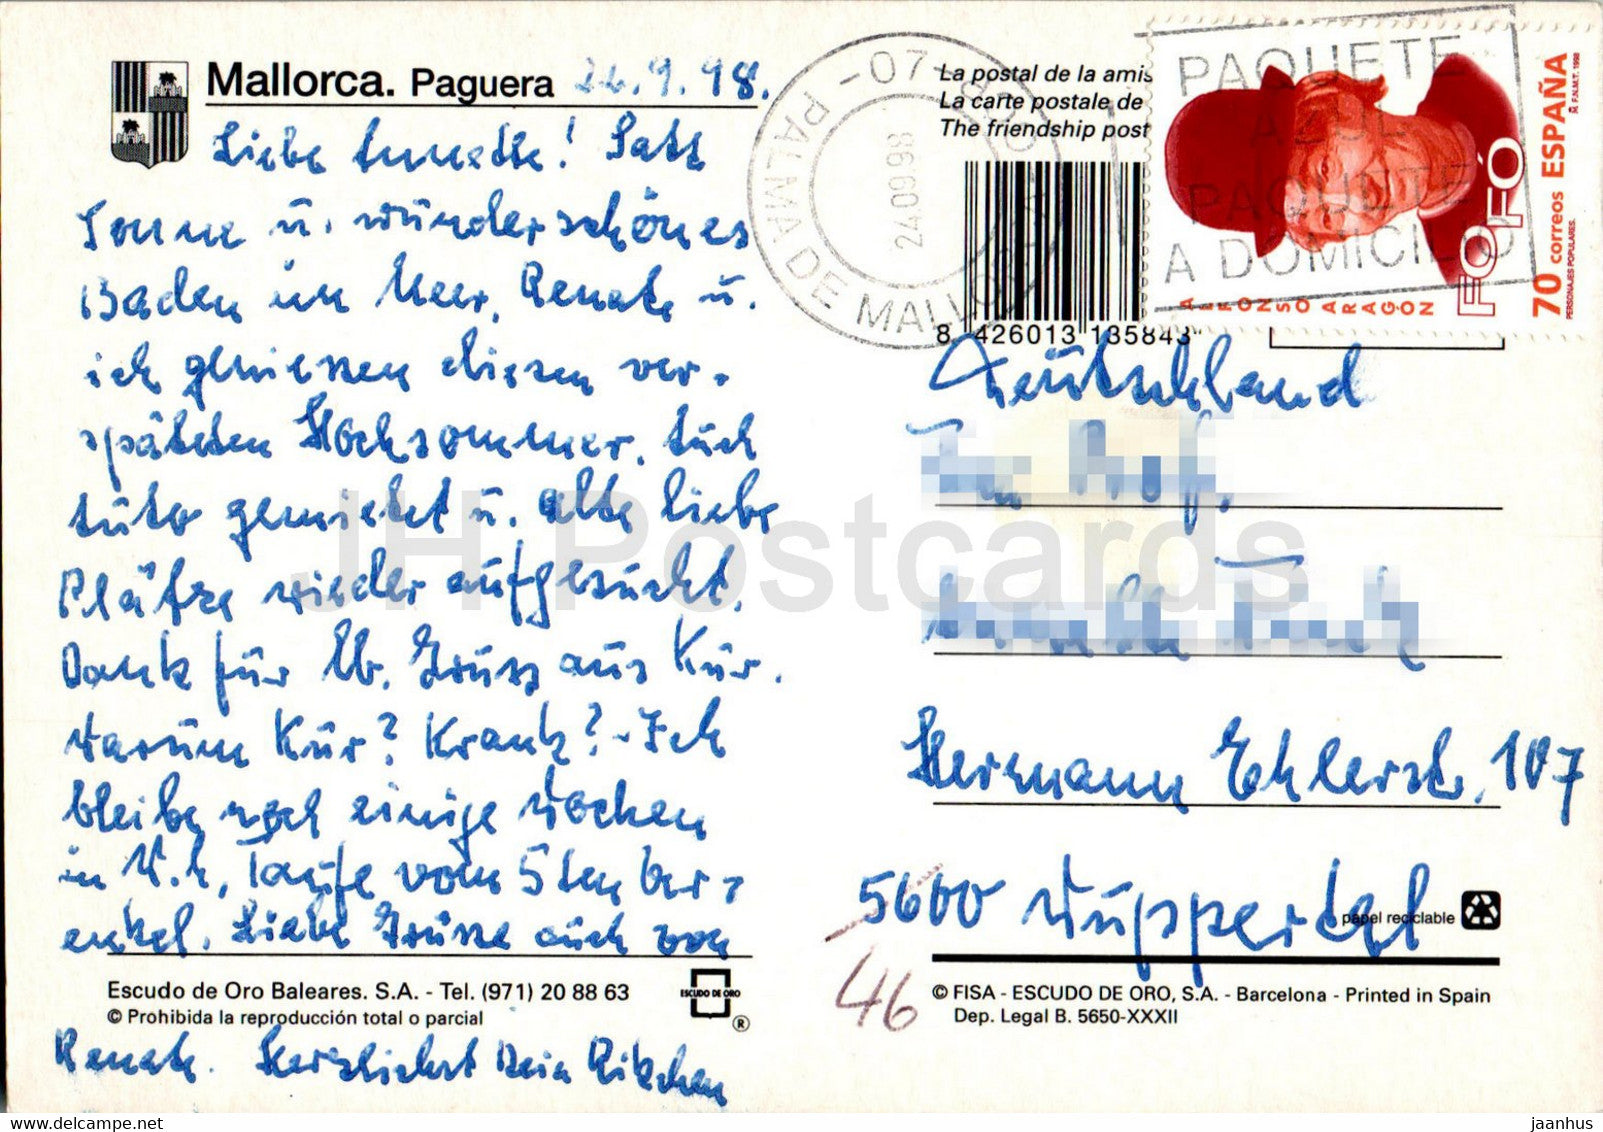 Mallorca. Paguera 22.9.98.
Liebe Annette! Satt
Sonne u. wunderschönes
Baden im Meer, Renate u.
ich geniessen diesen ver-
späteten Hochsommer. Auch
Auto gemietet u. alte liebe
Plätze wieder aufgesucht.
Dank für lb. Gruss aus Kur.
Warum Kur? Krank? - Ich
bleibe noch einige Wochen
in W., Taufe vom 5ten
enkel. Liebe Grüsse auch von
Escudo de Oro Baleares. S.A. - Tel. (971) 20 88 63
© Prohibida la reproducción total o parcial
ESCUDO DE ORO
®
Renate. Herzlichst Dein
La postal de la amis
La carte postale de
The friendship post
07
PALMA DE MALLORCA
24 09 98
PAQUETE
AZUL
PAQUETE
A DOMICILIO
FOFÓ
ALFONSO ARAGÓN
70 correos ESPAÑA
PERSONAJES POPULARES.
F.N.M.T. 1998
8 426013 135843
Deutschland
Hermann Ehlerstr. 107
5600 Wuppertal
46
papel reciclable
© FISA - ESCUDO DE ORO, S.A. - Barcelona - Printed in Spain
Dep. Legal B. 5650-XXXII
JH Postcards
delcampe.net
jaanhus